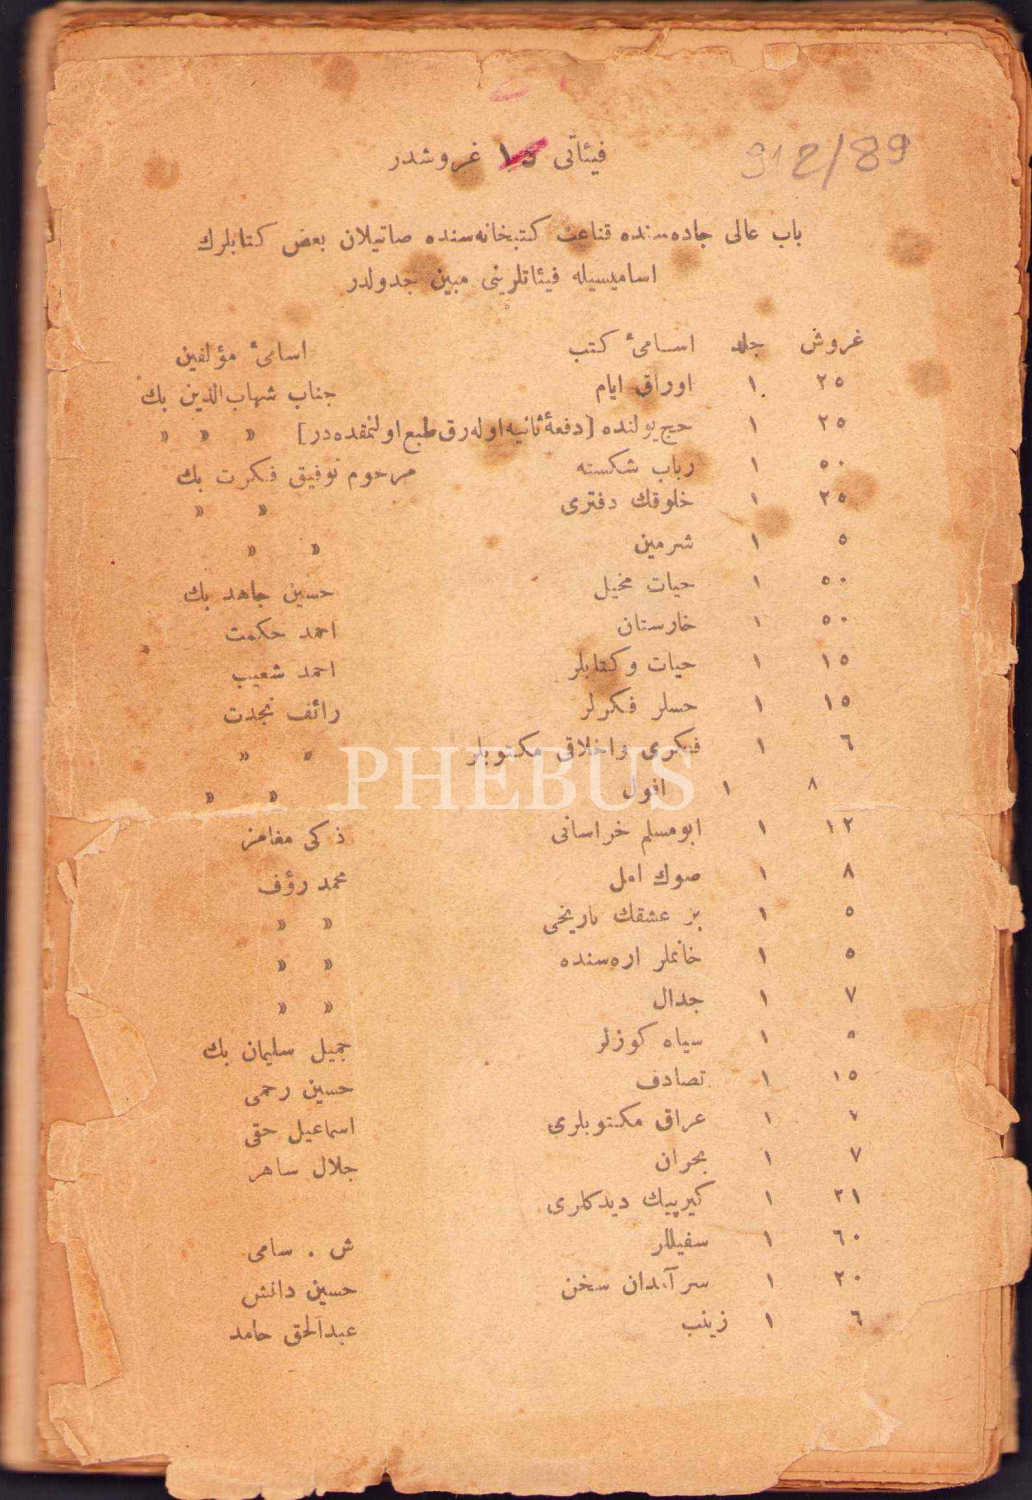 912/89
فیئاتی ١٥ غروشدر
باب عالی جاده‌سنده قناعت کتبخانه‌سنده صاتیلان بعض کتابلرك
اسامیسیله فیئاتلرینی مبین جدولدر
غروش جلد اسامیٔ کتب اسامیٔ مؤلفین
٢٥ ١ اوراق ایام جناب شهاب‌الدین بك
٢٥ ١ حج یولنده [دفعهٔ ثانیه اوله‌رق طبع اولنمقده‌در] » » »
٥٠ ١ رباب شکسته مرحوم توفیق فکرت بك
٢٥ ١ خلوقك دفتری » »
٥ ١ شرمین » »
٥٠ ١ حیات مخیل حسین جاهد بك
٥٠ ١ خارستان احمد حکمت
١٥ ١ حیات و کتابلر احمد شعیب
١٥ ١ حسلر فکرلر رائف نجدت
٦ ١ فکری و اخلاقی مکتوبلر » »
PHEBUS
٨ ١ افول » »
١٢ ١ ابومسلم خراسانی ذکی مغامز
٨ ١ صوك امل محمد رؤف
٥ ١ بر عشقك تاریخی » »
٥ ١ خانملر اره‌سنده » »
٧ ١ جدال » »
٥ ١ سیاه کوزلر جمیل سلیمان بك
١٥ ١ تصادف حسین رحمی
٧ ١ عراق مکتوبلری اسماعیل حقی
٧ ١ بحران جلال ساهر
٢١ ١ کیرپیك دیدکلری
٦٠ ١ سفیللر ش . سامی
٢٠ ١ سرآمدان سخن حسین دانش
٦ ١ زینب عبدالحق حامد